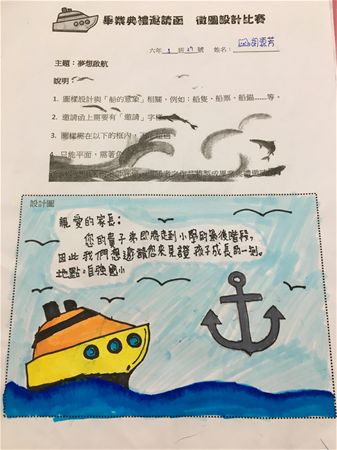 畢業典禮邀請函 徵圖設計比賽
六年 1 班 27 號 姓名:
主題:夢想啟航
說明:
1. 圖樣設計與「船的意象」相關,例如:船隻、船票、船錨……等。
2. 邀請函上需要有「邀請」字樣
3. 圖樣需在以下的框內,
4. 只能平面,需著色
設計圖
親愛的家長:
您的貴子弟即將走到小學的最後階段,
因此我們想邀請您來見證孩子成長的一刻。
地點:自強國小